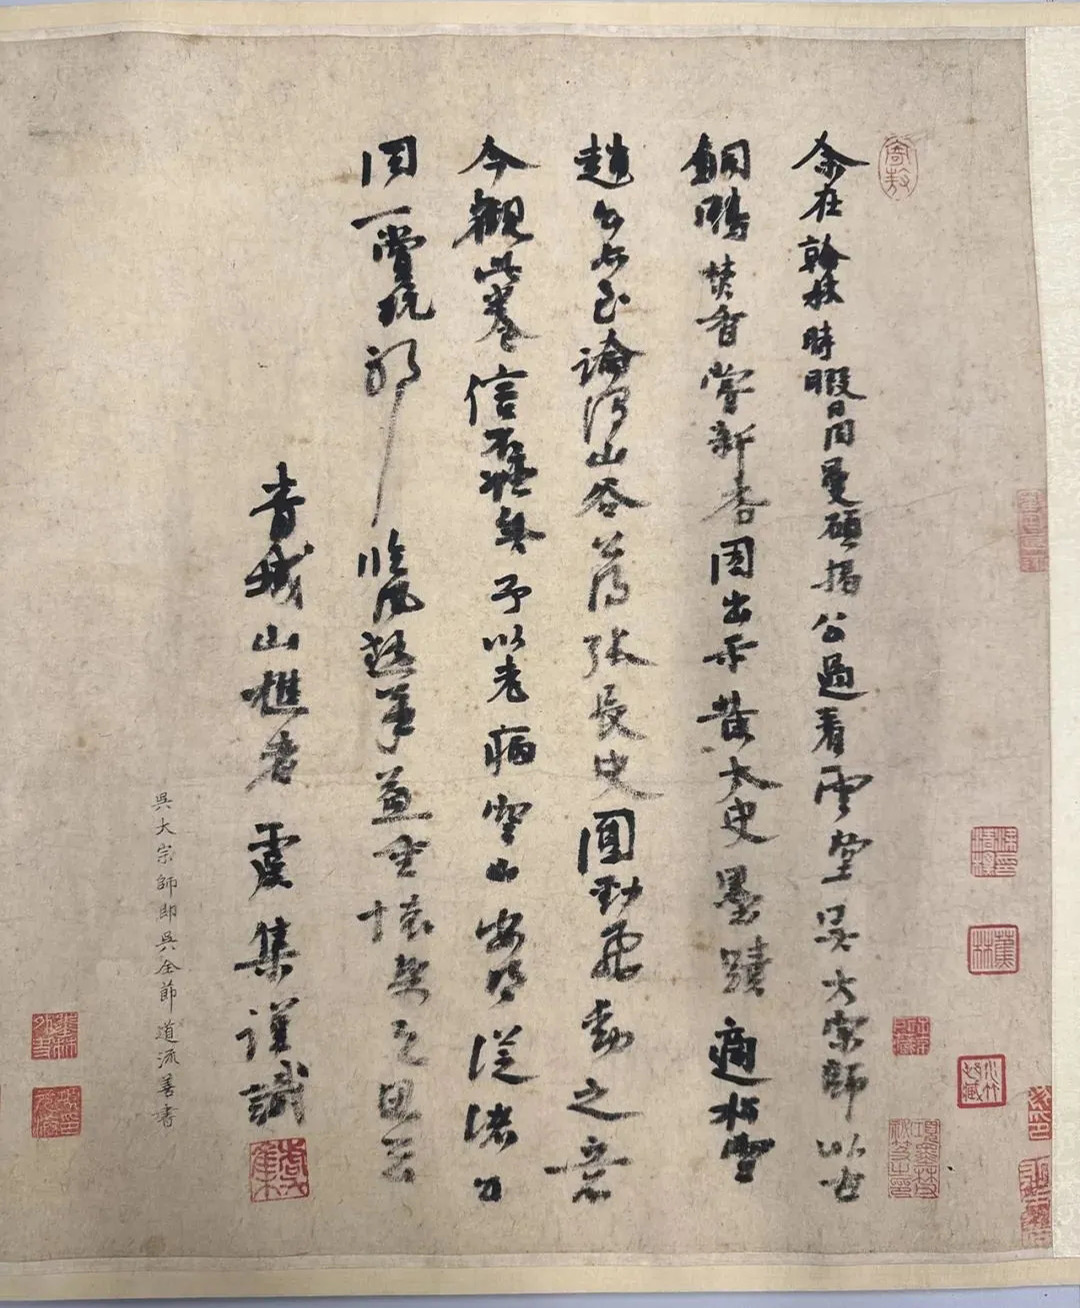 寄敖
余在翰林時暇日同曼碩揭公過看雲堂吳大宗師以古
銅鴨焚香嘗新杏因出示黃太史墨蹟適松雪
趙公亦至論山谷公得張長史圓勁飛動之意
今觀此卷信不誣矣予以老病空山安得從諸公
同一賞玩耶臨風筆益重懷舊之思云
青城山樵者虞集謹識
虞集
吳大宗師即吳全節道流善書
蕉林